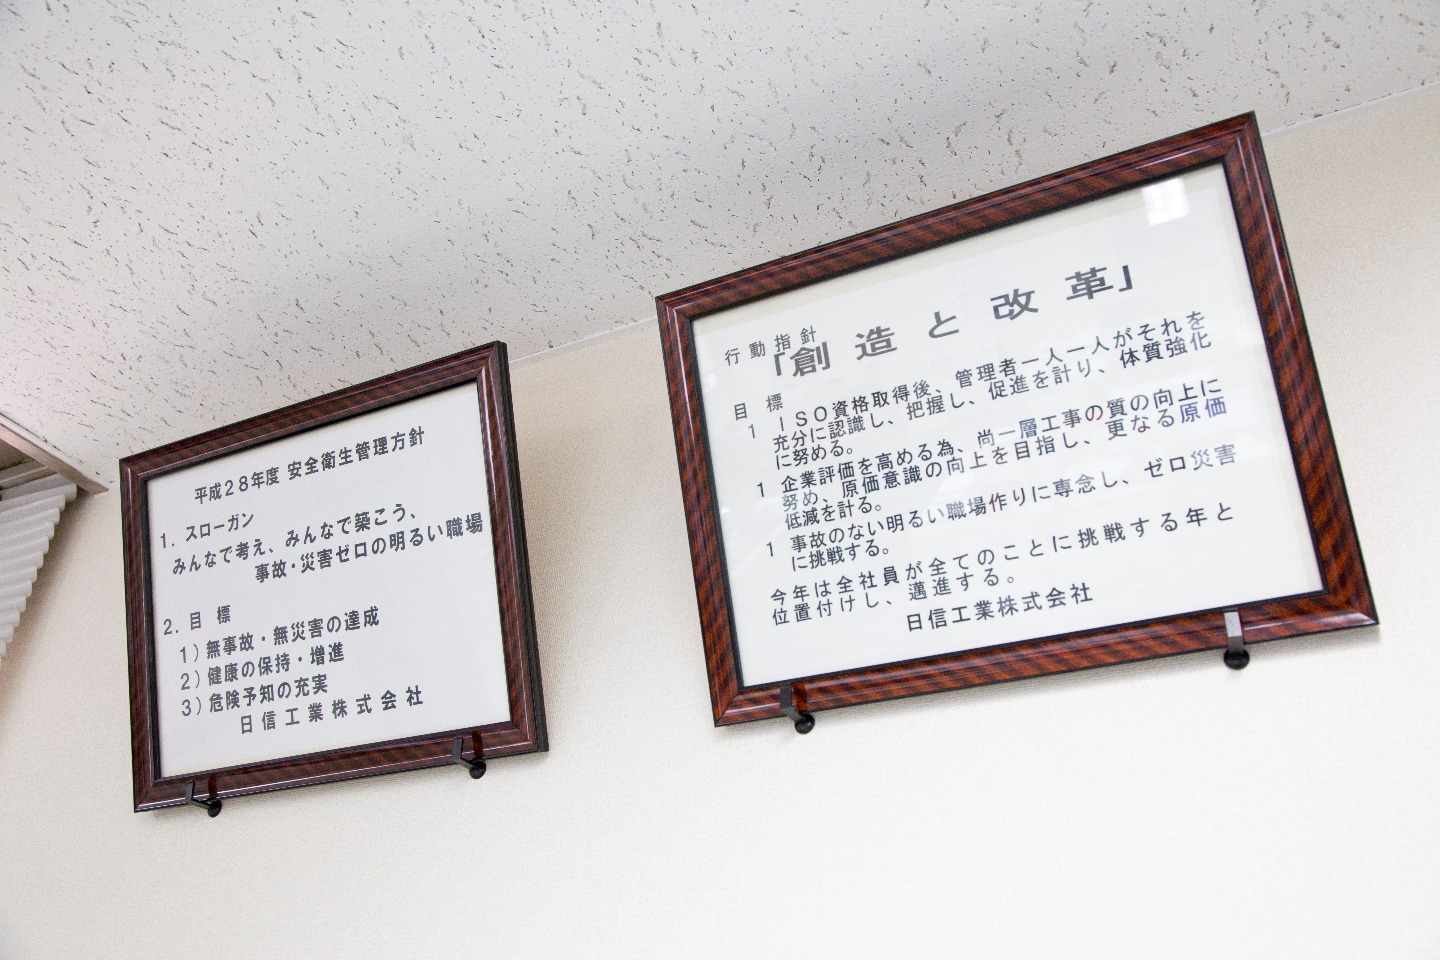 平成28年度 安全衛生管理方針
1. スローガン
みんなで考え、みんなで築こう、
事故・災害ゼロの明るい職場
2. 目 標
1) 無事故・無災害の達成
2) 健康の保持・増進
3) 危険予知の充実
日 信 工 業 株 式 会 社
行 動 指 針
「創 造 と 改 革」
目 標
1 ISO資格取得後、管理者一人一人がそれを
充分に認識し、把握し、促進を計り、体質強化
に努める。
1 企業評価を高める為、尚一層工事の質の向上に
努め、原価意識の向上を目指し、更なる原価
低減を計る。
1 事故のない明るい職場作りに専念し、ゼロ災害
に挑戦する。
今年は全社員が全てのことに挑戦する年と
位置付けし、邁進する。
日信工業株式会社